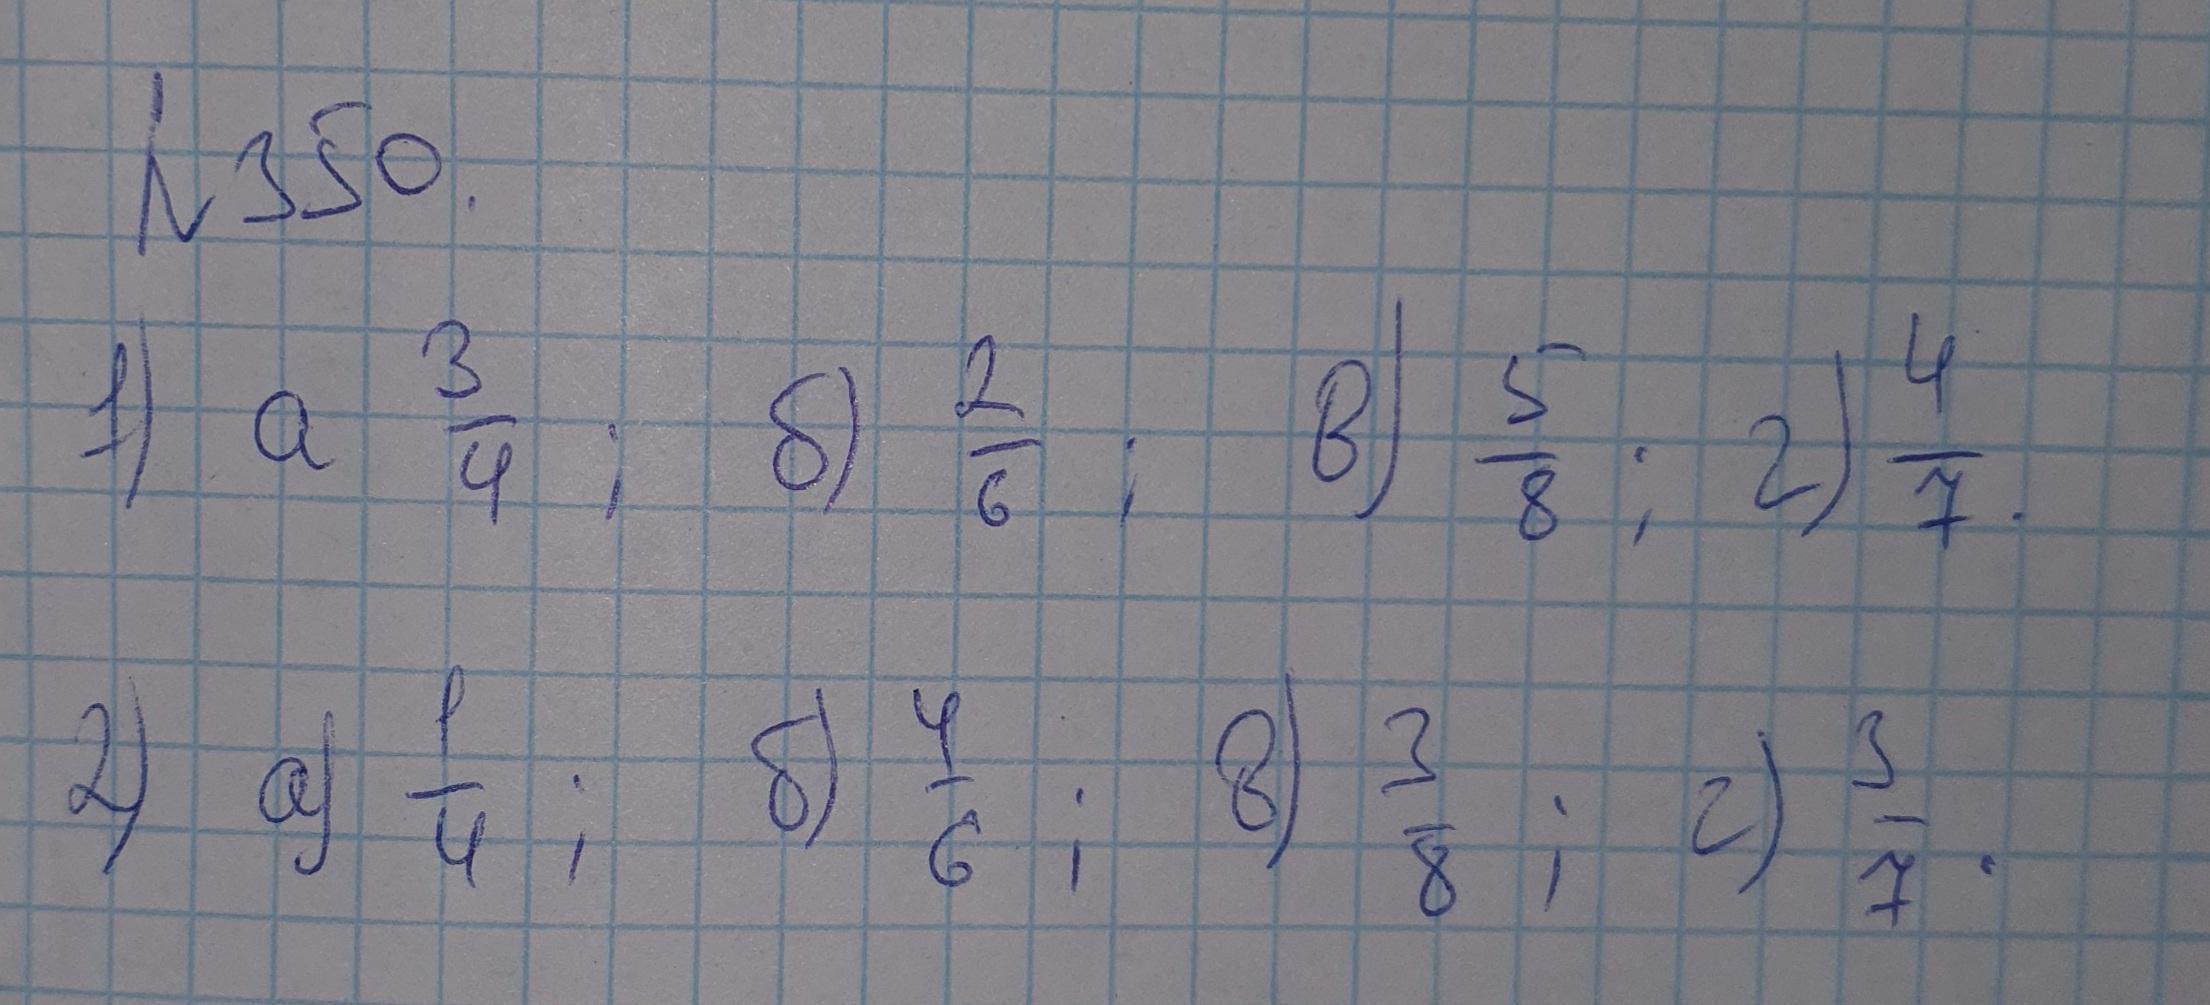 №350.
1) а 3/4 ; б) 2/6 ; в) 5/8 ; г) 4/7.
2) а) 1/4 ; б) 4/6 ; в) 3/8 ; г) 3/7.